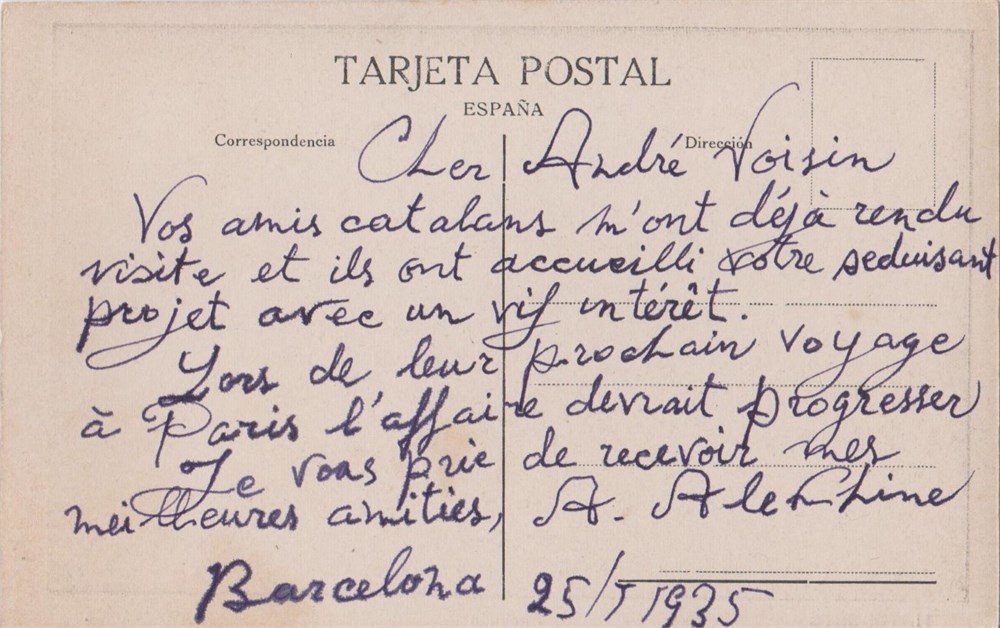 TARJETA POSTAL
ESPAÑA
Correspondencia
Dirección
Cher André Voisin
Vos amis catalans m'ont déjà rendu
visite et ils ont accueilli votre seduisant
projet avec un vif intérêt.
Lors de leur prochain voyage
à Paris l'affaire devrait progresser
Je vous prie de recevoir mes
meilleures amitiés, A. Alekhine
Barcelona 25/I 1935